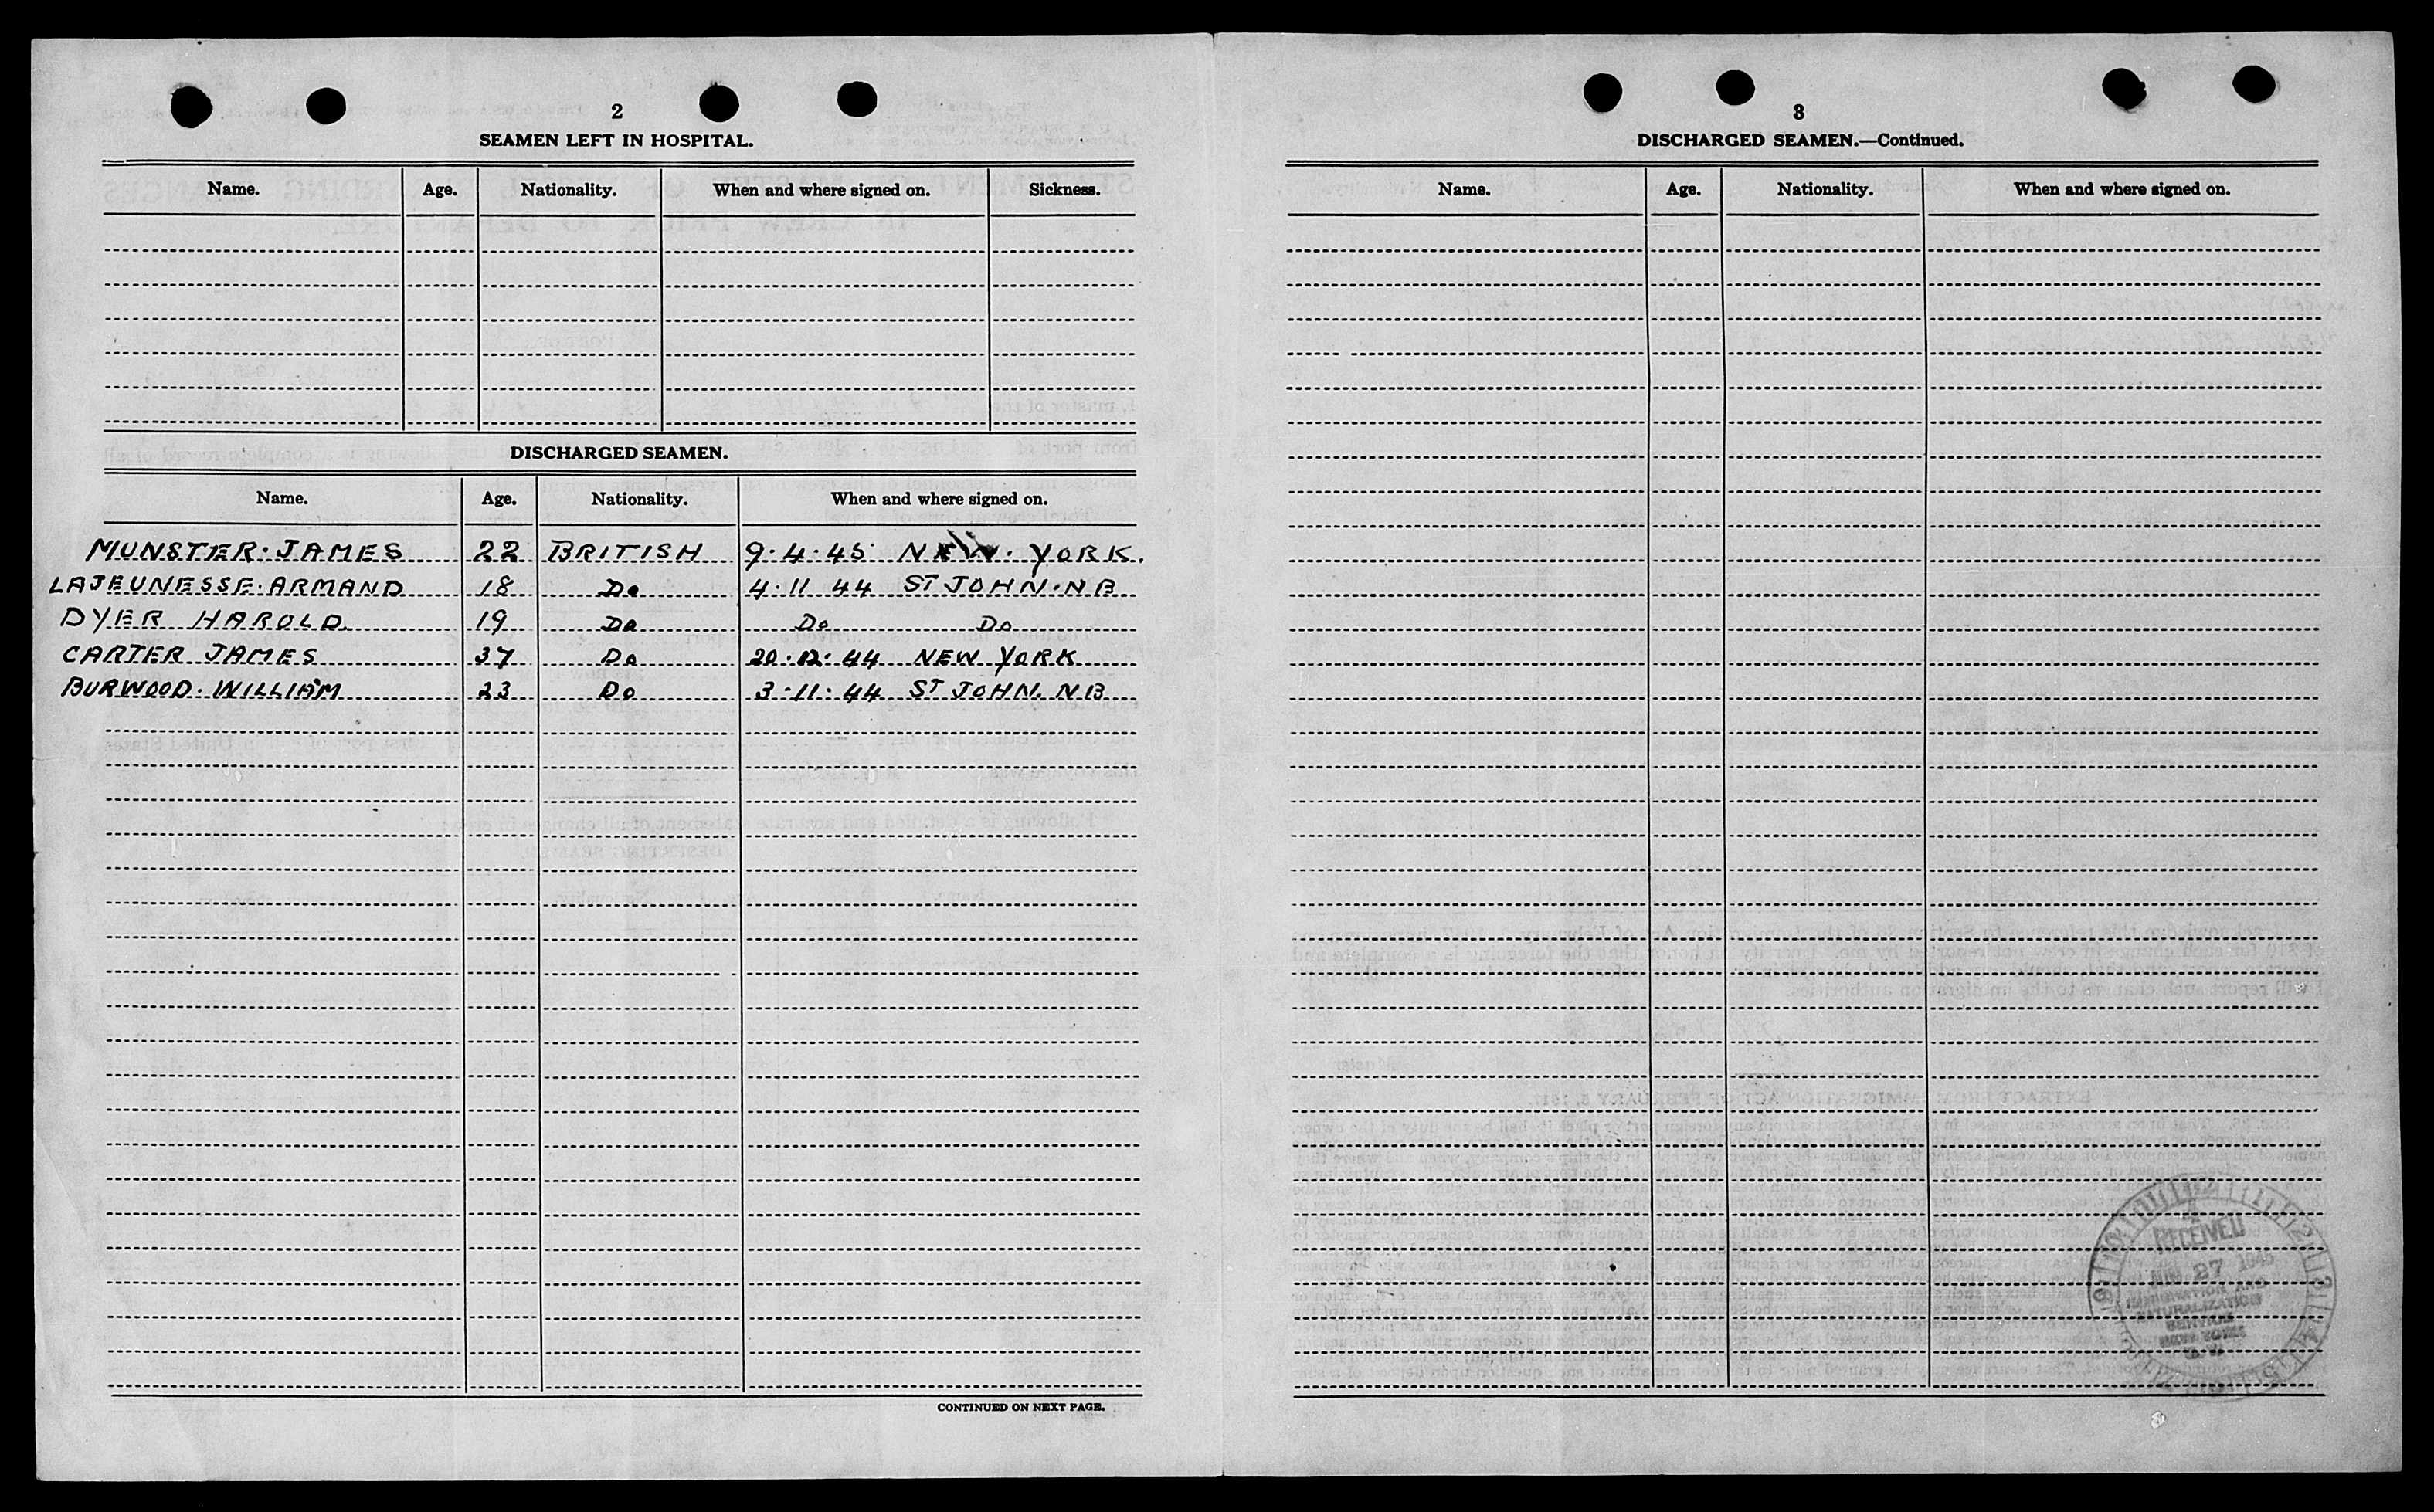 2
SEAMEN LEFT IN HOSPITAL.
Name. Age. Nationality. When and where signed on. Sickness.
DISCHARGED SEAMEN.
Name. Age. Nationality. When and where signed on.
MUNSTER. JAMES 22 BRITISH 9.4.45 NEW. YORK.
LAJEUNESSE. ARMAND 18 Do 4.11 44 ST JOHN. NB
DYER HAROLD. 19 Do Do Do
CARTER JAMES 37 Do 20.12.44 NEW YORK
BURWOOD. WILLIAM 23 Do 3.11.44 ST JOHN. NB
CONTINUED ON NEXT PAGE.
3
DISCHARGED SEAMEN.—Continued.
Name. Age. Nationality. When and where signed on.
RECEIVED
27 1945
IMMIGRATION AND
NATURALIZATION
SERVICE
NEW YORK